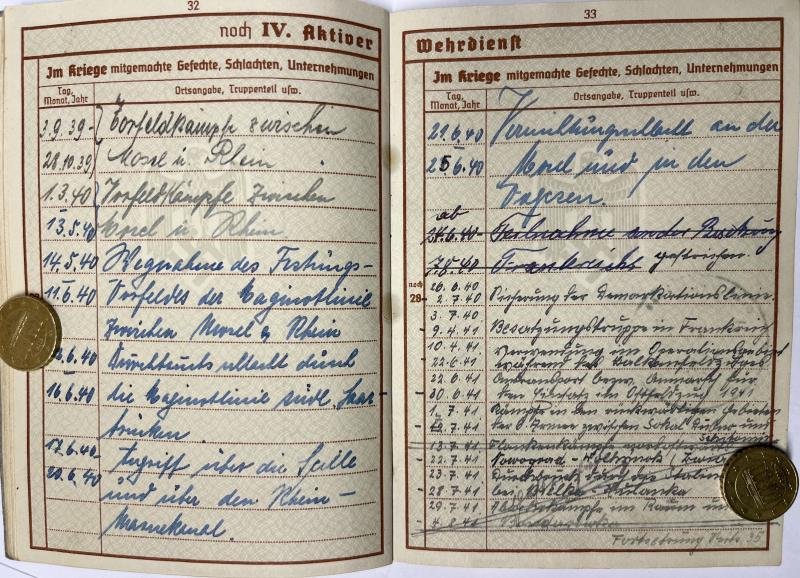 32
noch IV. Aktiver
Im Kriege mitgemachte Gefechte, Schlachten, Unternehmungen
Tag, Monat, Jahr
Ortsangabe, Truppenteil usw.
3.9.39- Vorfeldkämpfe zwischen
28.10.39 Mosel u. Rhein
1.3.40 Vorfeldkämpfe zwischen
13.5.40 Mosel u. Rhein.
14.5.40 Wegnahme des Festungs-
11.6.40 Vorfeldes der Maginotlinie
zwischen Mosel u. Rhein
6.40 Durchbruchschlacht durch
16.6.40 die Maginotlinie südl. Saar-
brücken.
17.6.40- Angriff über die Seille
20.6.40 und über den Rhein-
Marnekanal.
33
Wehrdienst
Im Kriege mitgemachte Gefechte, Schlachten, Unternehmungen
Tag, Monat, Jahr
Ortsangabe, Truppenteil usw.
21.6.40 Vernichtungsschlacht an der
25.6.40 Mosel und in den
Vogesen.
ab
6.40- Teilnahme an der Besetzung
Frankreichs gestrichen.
noch 28
26.6.40
2.7.40 Sicherung der Demarkationslinie.
3.7.40
9.4.41 Besatzungstruppe in Frankreich
10.4.41 Verwendung im Operationsgebiet
22.6.41 während des Balkanfeldzuges
22.6.41
30.6.41 den Einsatz im Ostfeldzug 1941
1.7.41 Kämpfe in den rückwärtigen Gebieten
7.41 der 6. Armee zwischen Sokal und
13.7.41
22.7.41 Nowograd-Wolhynsk /
23.7.41 Durchbruch durch die Stalin
28.7.41 bei
29.7.41 Abwehrkämpfe im Raum
4.8.41
Fortsetzung Seite 35